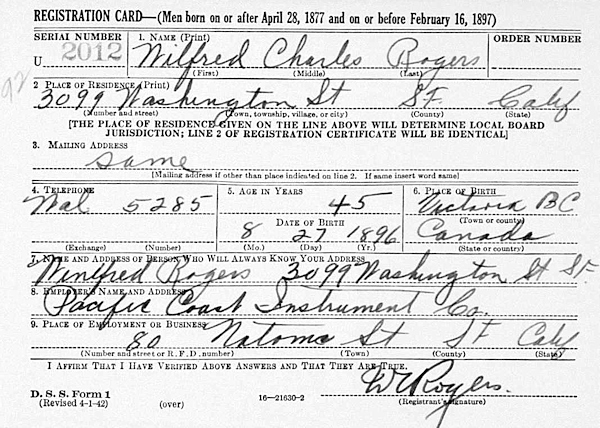 REGISTRATION CARD—(Men born on or after April 28, 1877 and on or before February 16, 1897)
SERIAL NUMBER 1. NAME (Print) ORDER NUMBER
U 2012 Wilfred Charles Rogers
(First) (Middle) (Last)
92
2 PLACE OF RESIDENCE (Print)
3099 Washington St SF Calif
(Number and street) (Town, township, village, or city) (County) (State)
[THE PLACE OF RESIDENCE GIVEN ON THE LINE ABOVE WILL DETERMINE LOCAL BOARD
JURISDICTION; LINE 2 OF REGISTRATION CERTIFICATE WILL BE IDENTICAL]
3. MAILING ADDRESS
same
[Mailing address if other than place indicated on line 2. If same insert word same]
4. TELEPHONE 5. AGE IN YEARS 6. PLACE OF BIRTH
Wal 5285 45 Victoria BC
DATE OF BIRTH (Town or county)
8 27 1896 Canada
(Exchange) (Number) (Mo.) (Day) (Yr.) (State or country)
7. NAME AND ADDRESS OF PERSON WHO WILL ALWAYS KNOW YOUR ADDRESS
Winifred Rogers 3099 Washington St SF
8. EMPLOYER'S NAME AND ADDRESS
Pacific Coast Instrument Co.
9. PLACE OF EMPLOYMENT OR BUSINESS
80 Natoma St SF Calif
(Number and street or R. F. D. number) (Town) (County) (State)
I AFFIRM THAT I HAVE VERIFIED ABOVE ANSWERS AND THAT THEY ARE TRUE.
D. S. S. Form 1 W C Rogers.
(Revised 4-1-42) (over) 16—21630-2 (Registrant's signature)